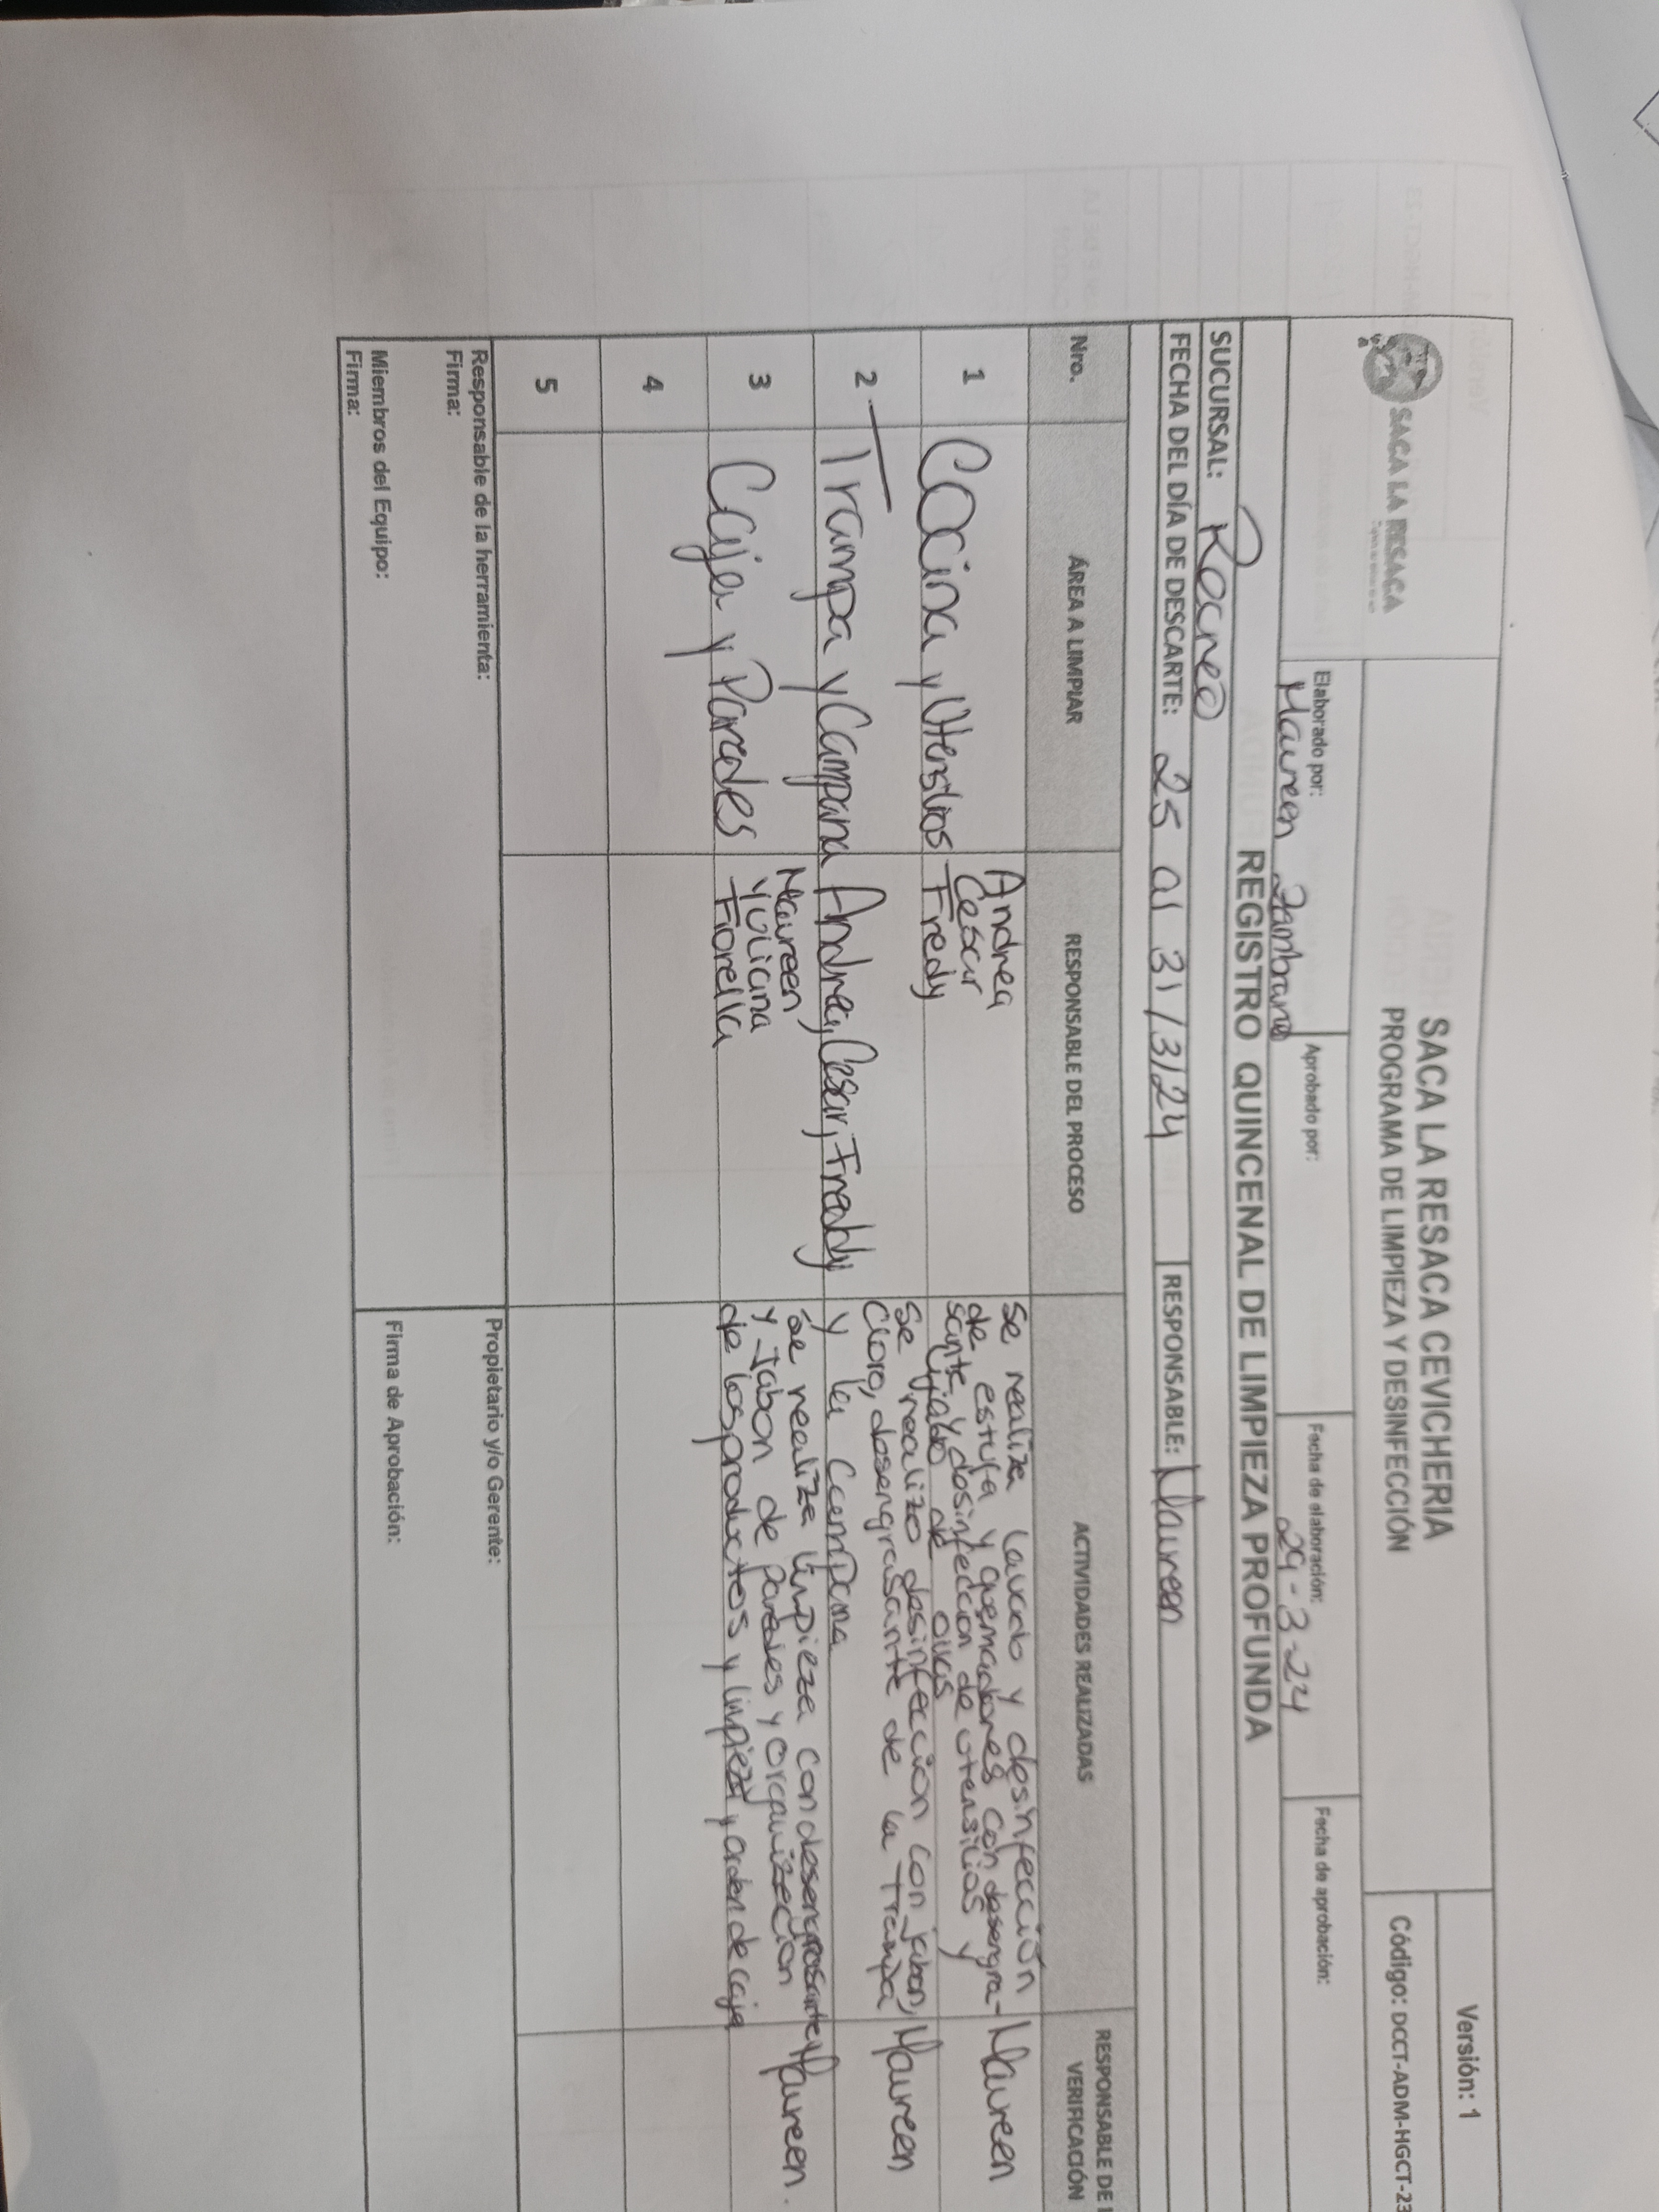 SACA LA RESACA
SACA LA RESACA CEVICHERIA
PROGRAMA DE LIMPIEZA Y DESINFECCIÓN
Versión: 1
Código: DCCT-ADM-HGCT-23
Elaborado por:
Maureen Zambrano
Aprobado por:
Fecha de elaboración:
29-3-24
Fecha de aprobación:
REGISTRO QUINCENAL DE LIMPIEZA PROFUNDA
SUCURSAL: Recreo
FECHA DEL DÍA DE DESCARTE: 25 al 31/3/24 RESPONSABLE: Maureen
Nro. ÁREA A LIMPIAR RESPONSABLE DEL PROCESO ACTIVIDADES REALIZADAS RESPONSABLE DE
VERIFICACIÓN
1 Cocina y Utensilios
Andrea
Cesar
Fredy
Se realiza lavado y desinfección
de estufa y quemadores con desengra-
sante y desinfeccion de utensilios y
de ollas
Maureen
2 Trampa y Campana
Andrea, Cesar, Freddy
Se realizo desinfección con jabon,
Cloro, desengrasante de la trampa
y la campana
Maureen
3 Caja y Paredes
Maureen
Yulicina
Fiorella
Se realiza limpieza con desengrasante
y Jabon de paredes y organizacion
de los productos y limpieza y orden de caja
Maureen.
4
5
Responsable de la herramienta:
Firma:
Propietario y/o Gerente:
Miembros del Equipo:
Firma:
Firma de Aprobación: